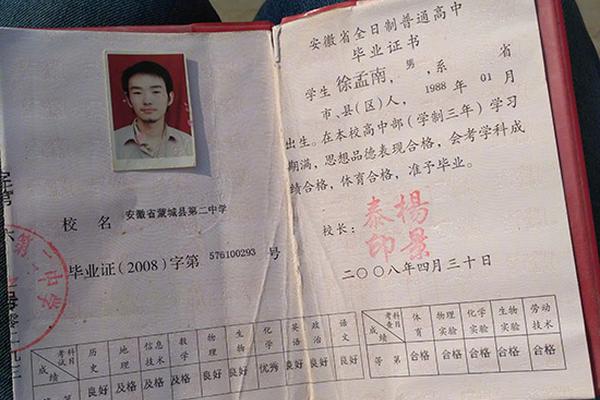 校 名 安徽省蒙城县第二中学
毕业证(2008)字第 576100293 号
第二中学
考试科目 历史 地理 信息技术 数学 物理 生物 化学 英语 政治 语文
成绩 等第 良好 及格 及格 及格 良好 良好 优秀 良好 良好 良好
安徽省全日制普通高中
毕业证书
学生 徐孟南，男，系 省
市、县(区)人，1988 年 01 月
出生。在本校高中部(学制三年)学习
期满，思想品德表现合格，会考学科成
绩合格，体育合格，准予毕业。
校长：
楊景泰印
二〇〇八年四月三十日
考查科目 体育 物理实验 化学实验 生物实验 劳动技术
成绩 等第 合格 合格 合格 合格 合格